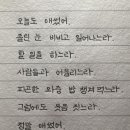 오늘도 애썼어.
졸린 눈 비비고 일어나느라.
할 일을 하느라.
사람들과 어울리느라.
피곤한 와중 밥 챙겨 먹느라.
그럼에도 웃음 짓느라.
정말 애썼어.